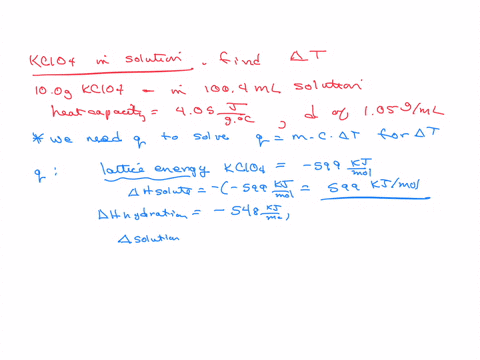 KClO4 in solution. find ΔT
10.0g KClO4 - in 100.4 mL solution
heat capacity = 4.05 J/g.°C, d of 1.05 g/mL
* we need q to solve q = m·C·ΔT for ΔT
q: lattice energy KClO4 = -599 KJ/mol
ΔH solute = -(-599 KJ/mol = 599 KJ/mol
ΔH hydration = -548 KJ/mol,
Δ solution